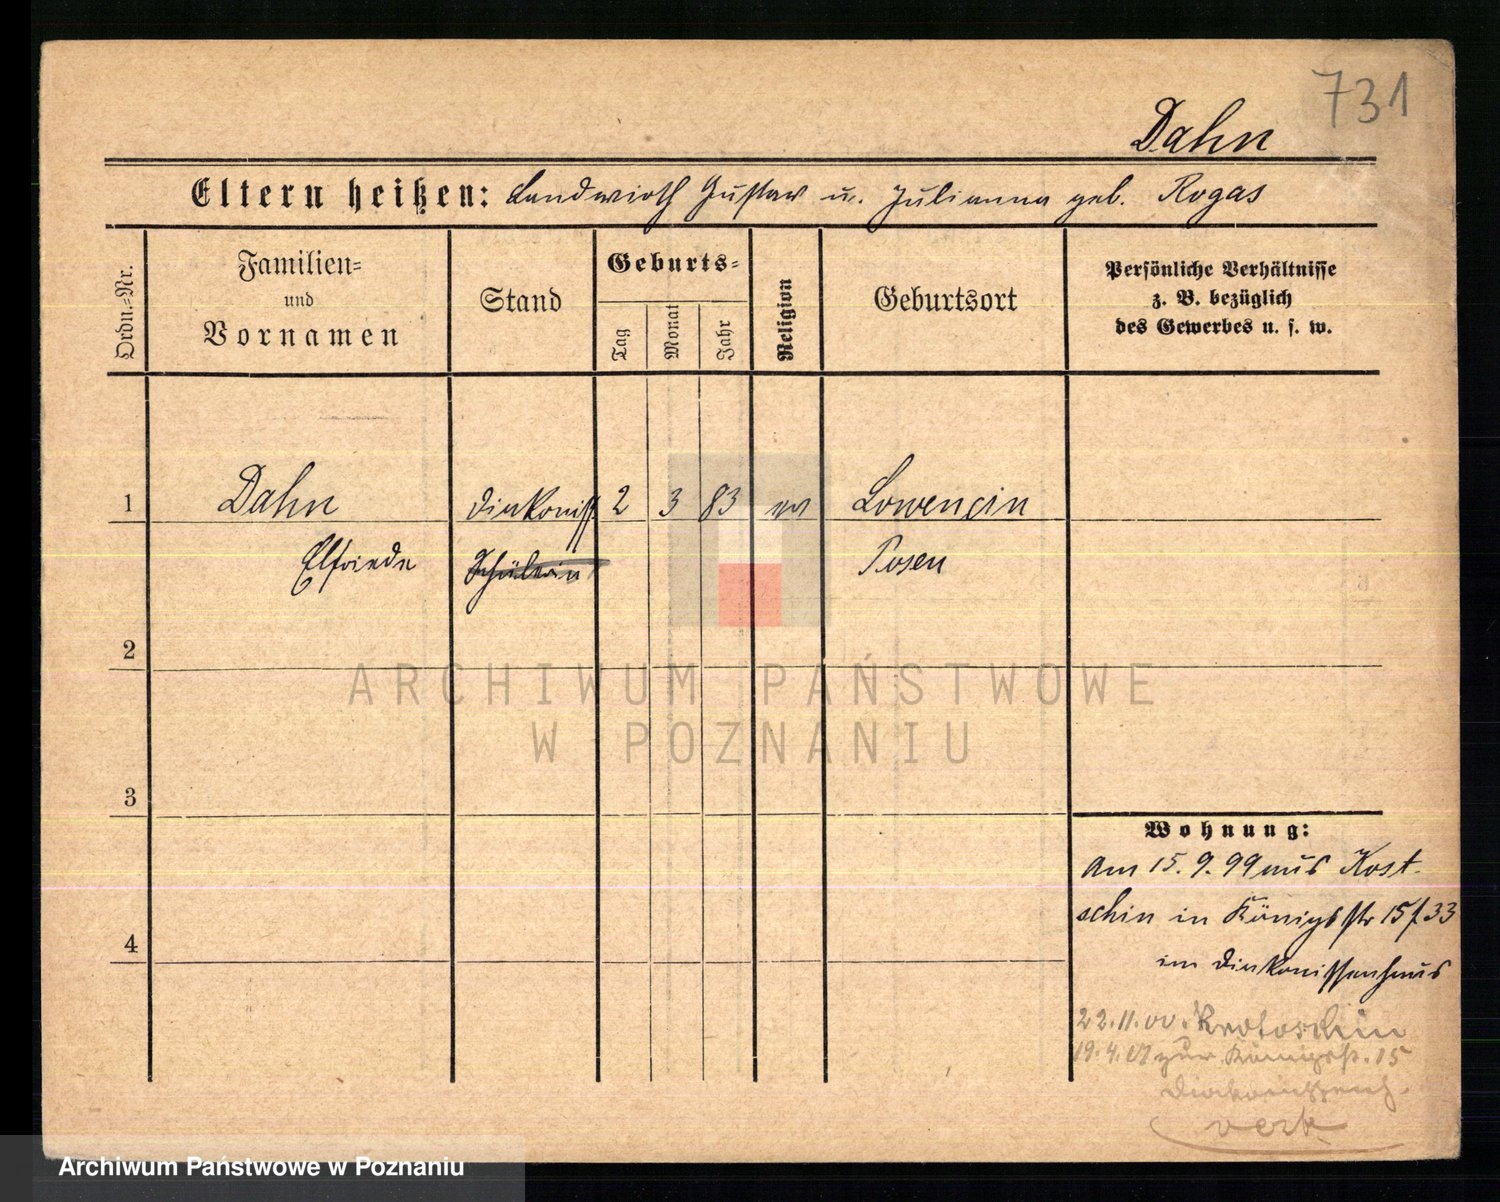 731
Dahn
Eltern heißen: Landwirth Gustav u. Julianna geb. Rogas
Ordn.-Nr.
Familien-
und
Vornamen
Stand
Geburts-
Tag
Monat
Jahr
Religion
Geburtsort
Persönliche Verhältnisse
z. B. bezüglich
des Gewerbes u. s. w.
1 Dahn Diakoniss. 2 3 83 ev Lowencin
Elfriede Schülerin Posen
2
ARCHIWUM PAŃSTWOWE
W POZNANIU
3
4
Wohnung:
Am 15.9.99 aus Kost-
schin in Königsstr 15 f 33
im Diakonissenhaus
22.11.00. Krotoschin
19.4.01 zur. Königsstr. 15
Diakonissenh.
verk
Archiwum Państwowe w Poznaniu